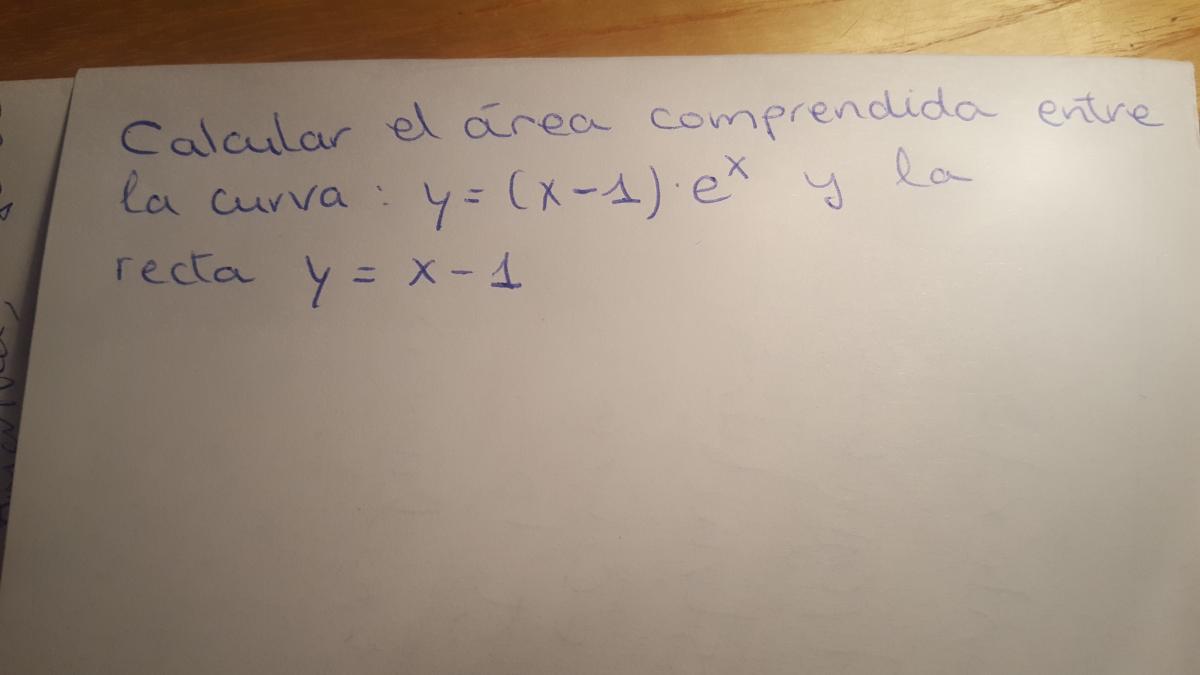 Calcular el área comprendida entre
la curva: y = (x-1)·eˣ y la
recta y = x-1